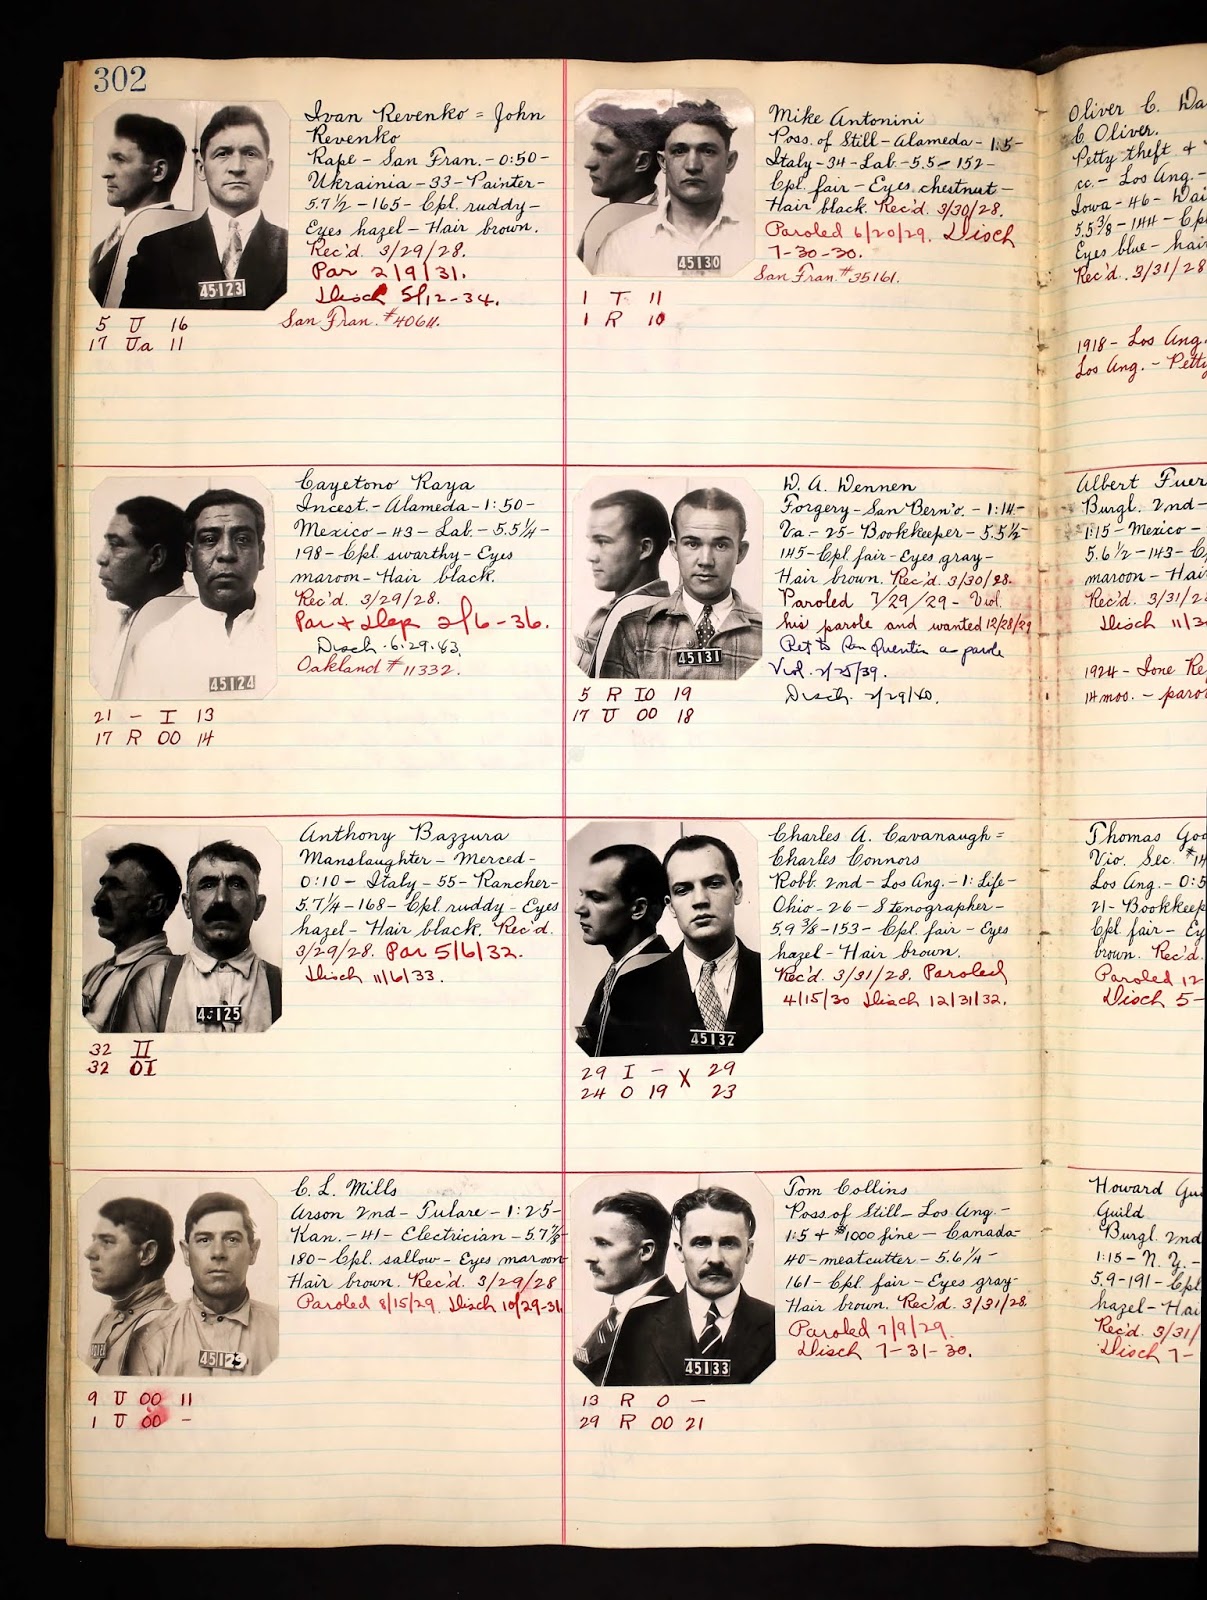 302
Ivan Revenko = John
Revenko
Rape - San Fran. - 0:50 -
Ukrainia - 33 - Painter -
5.7½ - 165 - Cpl. ruddy -
Eyes hazel - Hair brown.
Rec'd. 3/29/28.
Par 2/9/31.
Disch 5/12-34.
San Fran. #40611.
45123
5 U 16
17 Ua 11
Cayetono Raya
Incest. - Alameda - 1:50 -
Mexico - 43 - Lab. - 5.5¼ -
198 - Cpl. swarthy - Eyes
maroon - Hair black.
Rec'd. 3/29/28.
Par + Dep 2/6-36.
Disch. 6.29.43.
Oakland #11332.
45124
21 - I 13
17 R OO 14
Anthony Bazzura
Manslaughter - Merced -
0:10 - Italy - 55 - Rancher -
5.7¼ - 168 - Cpl. ruddy - Eyes
hazel - Hair black. Rec'd.
3/29/28. Par 5/6/32.
Disch 11/6/33.
45125
32 II
32 OI
C. L. Mills
Arson 2nd - Tulare - 1:25 -
Kan. - 41 - Electrician - 5.7⅞ -
180 - Cpl. sallow - Eyes maroon
Hair brown. Rec'd. 3/29/28
Paroled 8/15/29. Disch 10/29-31
9 U OO 11
1 U OO -
Mike Antonini
Poss. of Still - Alameda - 1:5 -
Italy - 34 - Lab. - 5.5 - 152 -
Cpl. fair - Eyes chestnut -
Hair black. Rec'd. 3/30/28.
Paroled 6/20/29. Disch
7-30-30.
San Fran. #35161.
45130
1 T 11
1 R 10
W. A. Wennen
Forgery - San Bern'o. - 1:14 -
Va. - 25 - Bookkeeper - 5.5½ -
145 - Cpl. fair - Eyes gray -
Hair brown. Rec'd. 3/30/28.
Paroled 7/29/29 - Viol.
his parole and wanted 12/28/29
Ret to San Quentin a parole
Viol. 2/25/39.
Disch. 2/29/40.
45131
5 R IO 19
17 U OO 18
Charles A. Cavanaugh =
Charles Connors
Robb. 2nd - Los Ang. - 1:Life -
Ohio - 26 - Stenographer -
5.9⅜ - 153 - Cpl. fair - Eyes
hazel - Hair brown.
Rec'd. 3/31/28. Paroled
4/15/30 Disch 12/31/32.
45132
29 I - X 29
24 O 19 23
Tom Collins
Poss. of Still - Los Ang. -
1:5 + $1000 fine - Canada -
40 - meatcutter - 5.6¼ -
161 - Cpl. fair - Eyes gray -
Hair brown. Rec'd. 3/31/28.
Paroled 7/9/29.
Disch 7-31-30.
45133
13 R O -
29 R OO 21
Oliver C.
C Oliver.
Petty theft +
cc. - Los Ang. -
Iowa - 46 -
5.5⅜ - 144 -
Eyes blue - hair
Rec'd. 3/31/28
1918 - Los Ang.
Los Ang. - Petty
Albert
Burgl. 2nd -
1:15 - Mexico -
5.6½ - 143 -
maroon -
Rec'd. 3/31/
Disch
1924 - Ione
14 mos. -
Thomas
Vio. Sec.
Los Ang. -
21 -
Cpl. fair -
brown. Rec'd.
Paroled 12
Disch 5-
Howard
Guild
Burgl. 2nd
1:15 - N. Y. -
5.9 - 191 - Cpl
hazel -
Rec'd. 3/31/
Disch 7-